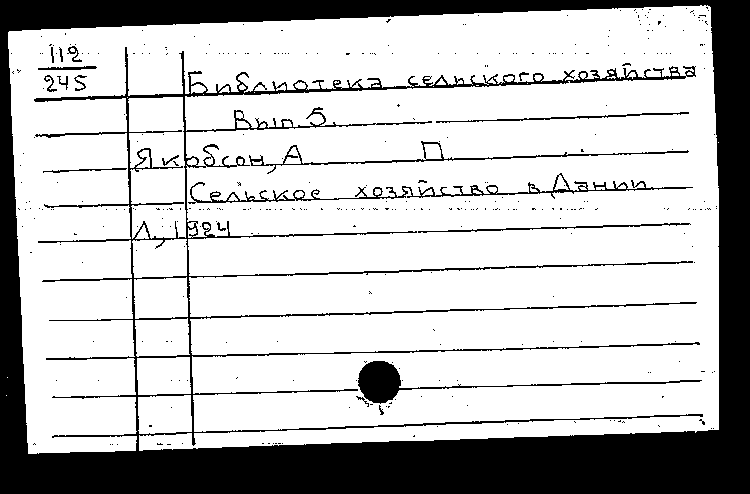 112
245
Библиотека сельского хозяйства
Вып. 5.
Якобсон, А П
Сельское хозяйство в Дании
Л., 1924